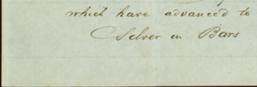 which have advanced to
Silver in Bars